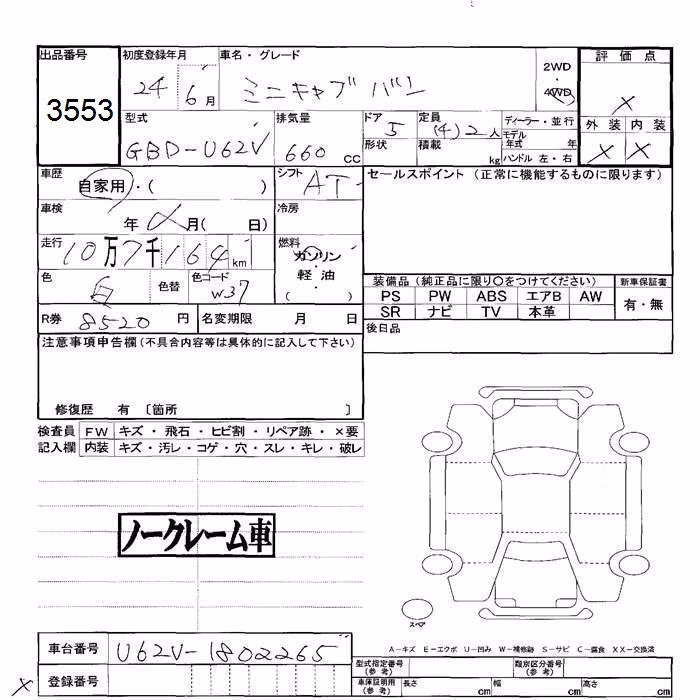 出品番号 初度登録年月 車名・グレード 評価点
3553 24 6月 ミニキャブ バン 2WD・4WD ×
型式 排気量 ドア 定員 ディーラー・並行 外装 内装
GBD-U62V 660 cc 5 (4)2人 モデル年式 年 × ×
形状 積載 kg ハンドル 左・右
車歴 自家用・( ) シフト AT セールスポイント (正常に機能するものに限ります)
車検 年 月( 日) 冷房
走行 10万7千164km 燃料 ガソリン・軽油 ( )
色 白 色替 色コード W37 装備品 (純正品に限り○をつけてください) 新車保証書
PS PW ABS エアB AW 有・無
SR ナビ TV 本革
R券 8520円 名変期限 月 日 後日品
注意事項申告欄(不具合内容等は具体的に記入して下さい)
修復歴 有 〔箇所 〕
検査員 FW キズ・飛石・ヒビ割・リペア跡・×要
記入欄 内装 キズ・汚レ・コゲ・穴・スレ・キレ・破レ
ノークレーム車
スペア
A-キズ E-エクボ U-凹み W-補修跡 S-サビ C-腐食 XX-交換済
車台番号 U62V-1802265 型式指定番号(参考) 類別区分番号(参考)
× 登録番号 車庫証明用(参考) 長さ cm 幅 cm 高さ cm